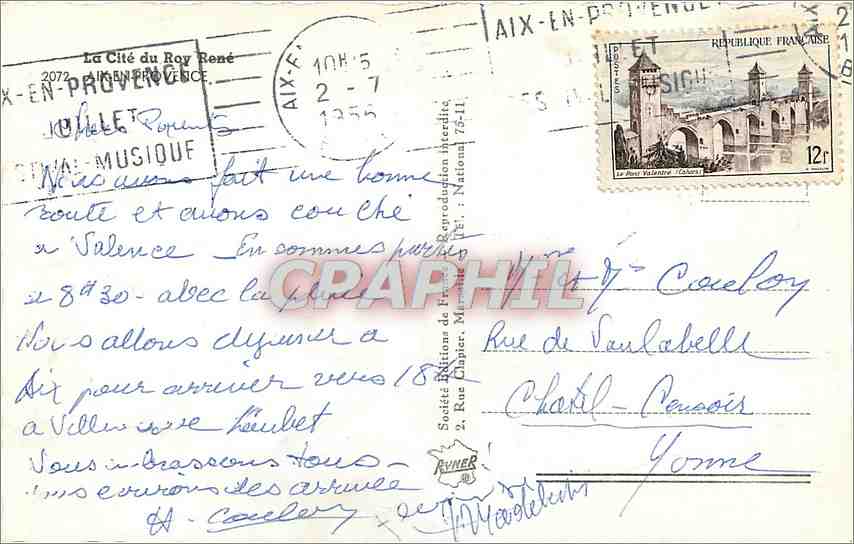 La Cité du Roy René
2072 AIX-EN-PROVENCE
X-EN-PROVENCE
JUILLET
STIVAL MUSIQUE
AIX-E
10H15
2 - 7
1956
AIX-EN-PROVENCE
JUILLET
MUSIQUE
RÉPUBLIQUE FRANÇAISE
POSTES
12F
Le Pont Valentré (Cahors)
Chers Parents
Nous avons fait une bonne
route et avons couché
a Valence En sommes partis
a 8H30 - avec la pluie
Nous allons dejeuner a
Aix pour arriver vers 18H
a Villeneuve Loubet
Vous embrassons tous -
ecrirons des arrivée
H - Couloy
Société Editions de France Reproduction interdite
2, Rue Clapier, Marseille Tél. : National 75-11
RYNER
CPARHIL
Mme et Mr Couloy
Rue de Vaulabelle
Chatel-Censoir
Yonne